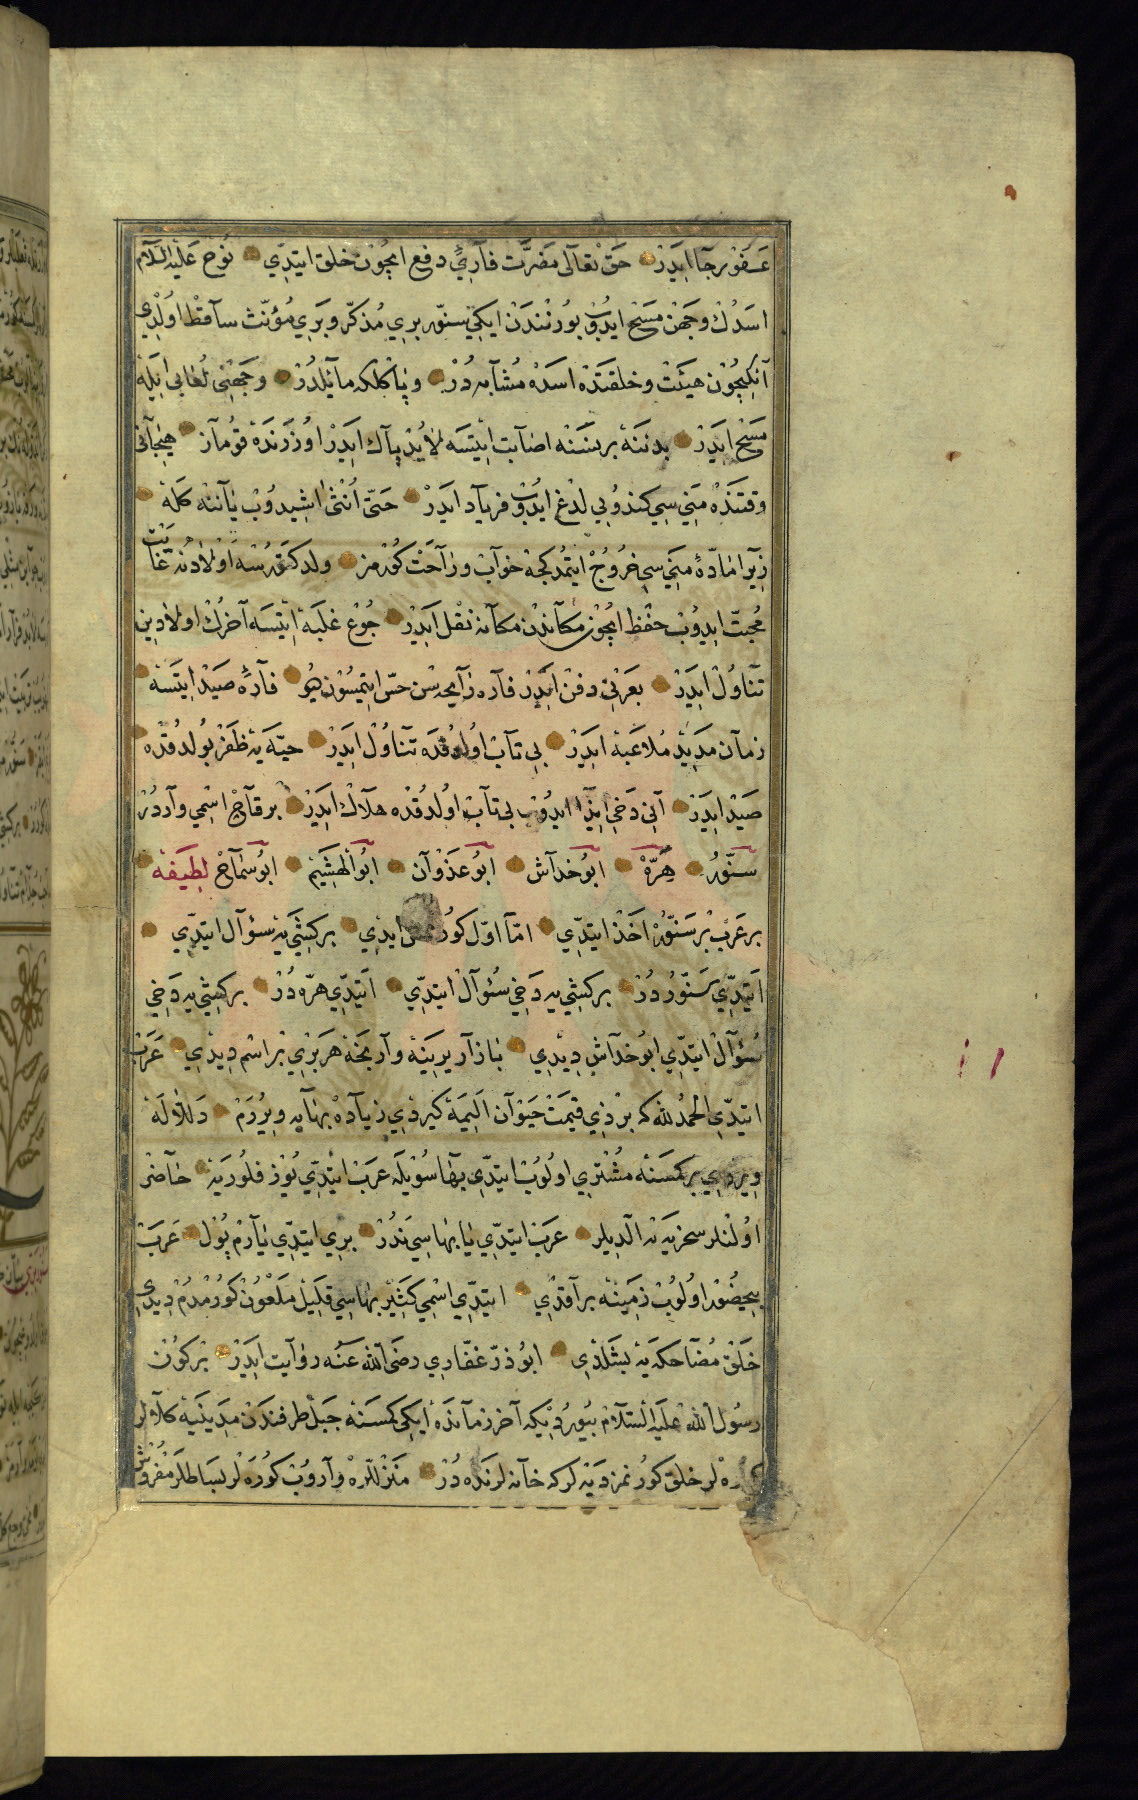 عفو رجا ایدر حق تعالی مضرت فاره‌یی دفع ایچون خلق ایتدی نوح علیه السلام
اسدك وجهن مسح ایدوب بورنندن ایکی سنّور بری مذکّر و بری مؤنّث ساقط اولدی
آنکیچون هیئت و خلقتده اسده مشابه در و پاکلکه مایلدر و وجهنی لعابی ایله
مسح ایدر بدننه بر نسنه اصابت ایتسه لابد پاك ایدر اوزرنده قومآز هیجانی
وقتنده منی سی کندویی لدغ ایدوب فریاد ایدر حتّی انثی اشیدوب یاننه کله
زیرا مادّۀ منی سی خروج ایتمدکجه خواب و راحت کورمز ولد کتورسه اولادنه غایت
محبت ایدوب حفظ ایچون مکاندن مکانه نقل ایدر جوع غلبه ایتسه آخرك اولادین
تناول ایدر بعرنی دفن ایدر فاره رایحه سن حس ایتمسون دیو فاره صید ایتسه
زمان مدید ملاعبه ایدر بی تاب اولدقده تناول ایدر حیّه یه ظفر بولدقده
صید ایدر آنی دخی ایذا ایدوب بی تاب اولدقده هلاك ایدر برقاج اسمی واردر
سنّور هرّه ابو خداش ابو غذوان ابو الهیثم ابو شماخ لطیفه
بر عرب بر سنّور اخذ ایتدی امّا اوّل کورمش ایدی بر کشی یه سؤال ایتدی
ایتدی سنّور در بر کشی یه دخی سؤال ایتدی ایتدی هرّه در بر کشی یه دخی
سؤال ایتدی ابو خداش دیدی بازار یرینه وارنجه هر بری بر اسم دیدی عرب
ایتدی الحمد لله که بر ذی قیمت حیوان الیمه کیردی زیاده بهایه ویررم دلاله
ویردی بر کمسنه مشتری اولوب ایتدی بها سویله عرب ایتدی یوز فلوریه حاضر
اولنلر سخریه یه الدیلر عرب ایتدی یا بهاسی ندر بری ایتدی یارم پول عرب
بیحضور اولوب زمینه براقدی ایتدی اسمی کثیر بهاسی قلیل ملعون کورمدم دیدی
خلق مضاحکه یه بشلدی ابو ذرّ غفّاری رضی الله عنه روایت ایدر بر کون
رسول الله علیه السلام بیوردیکه آخر زمانده ایکی کمسنه جبل طرفندن مدینیه کلورلر
لر خلق کورنمز دیه لر که خانه لرنده در منزللره واروب کوره لر بساطلر مفروش